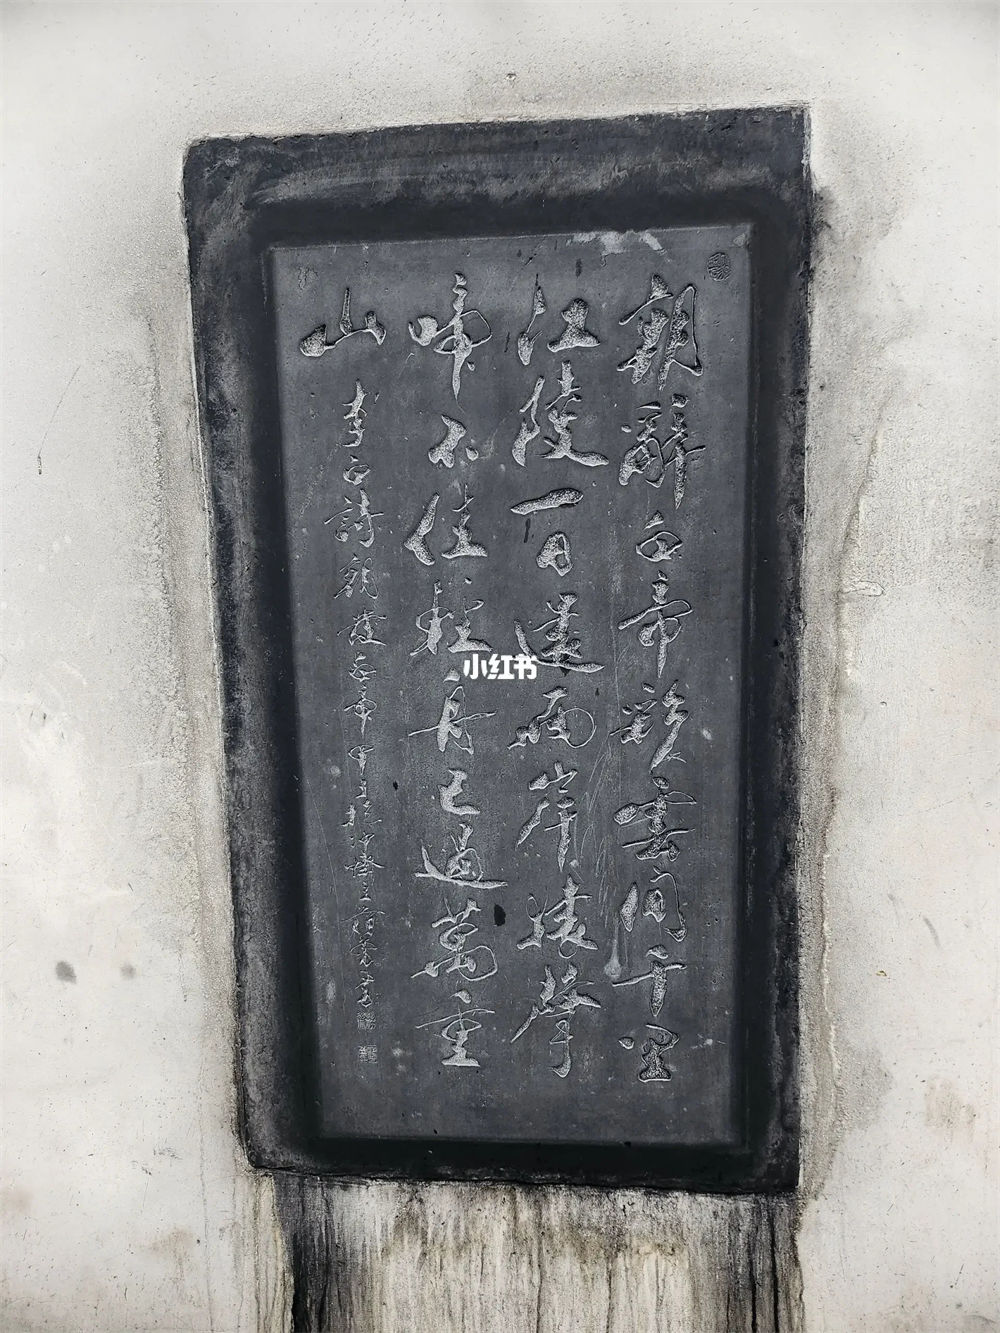 朝辭白帝彩雲間千里
江陵一日還兩岸猿聲
啼不住輕舟已過萬重
山
李白詩朝發白帝
小红书